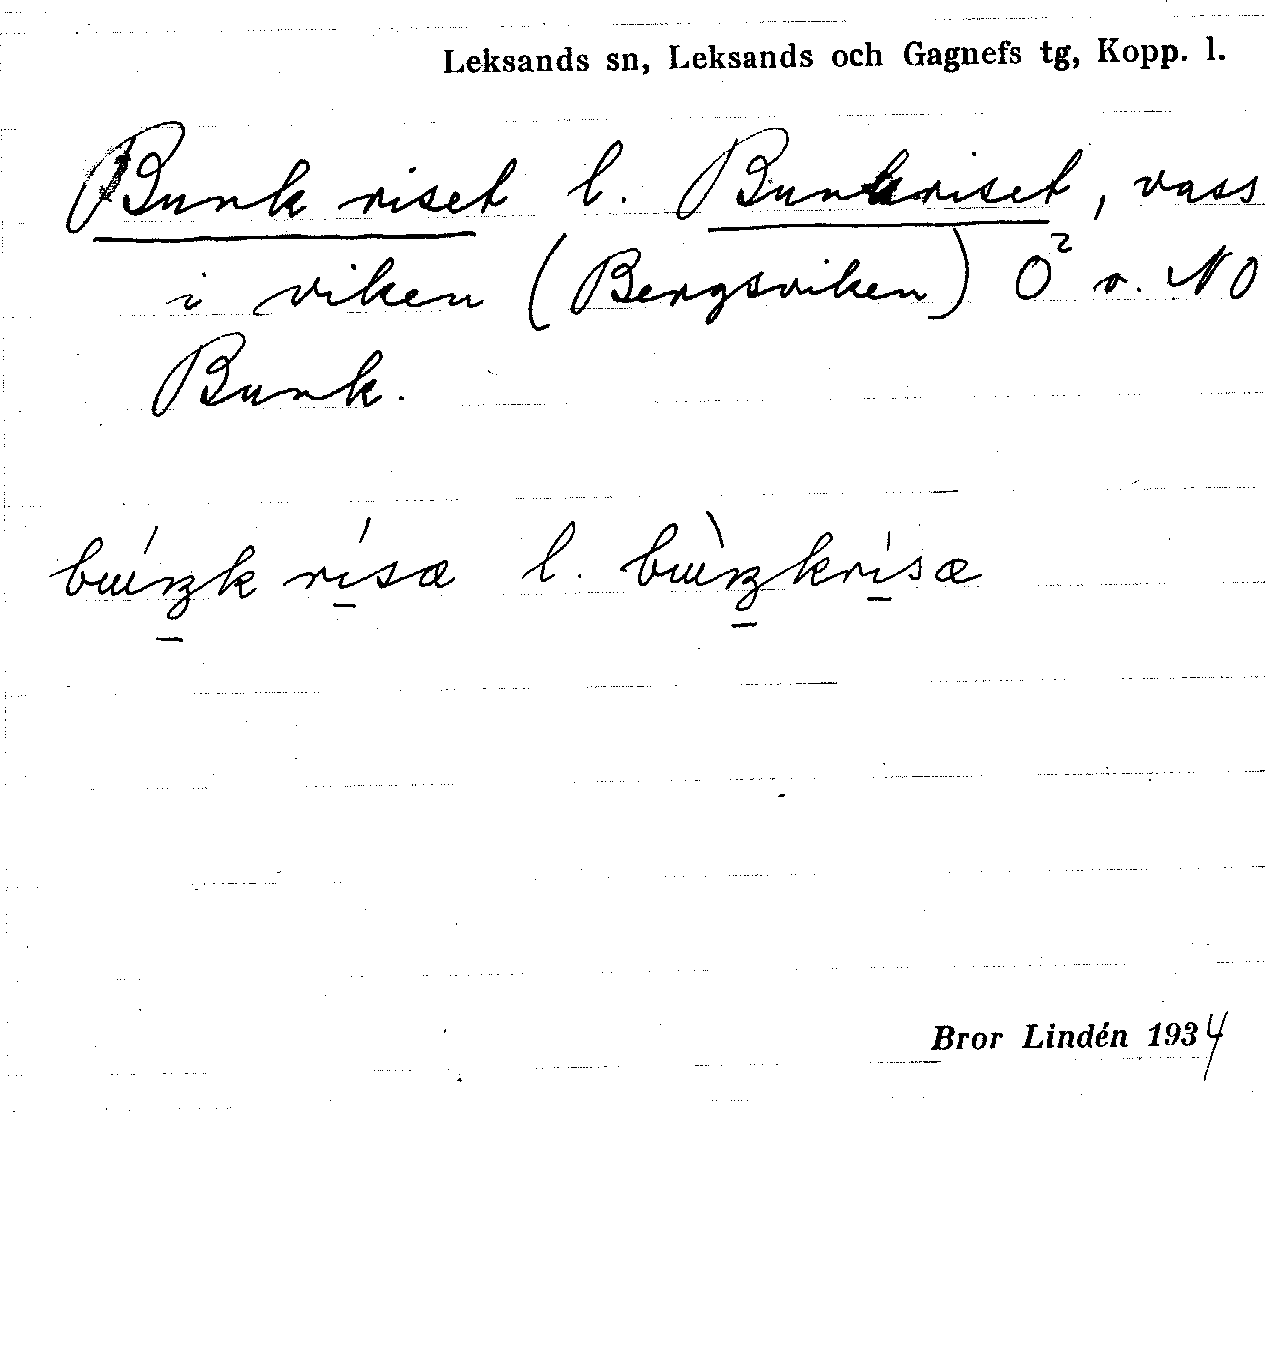 Leksands sn, Leksands och Gagnefs tg, Kopp. l.
Bunk riset l. Bunkriset, vass
i viken (Bergsviken) O² o. NO
Bunk.
l.
Bror Lindén 1934